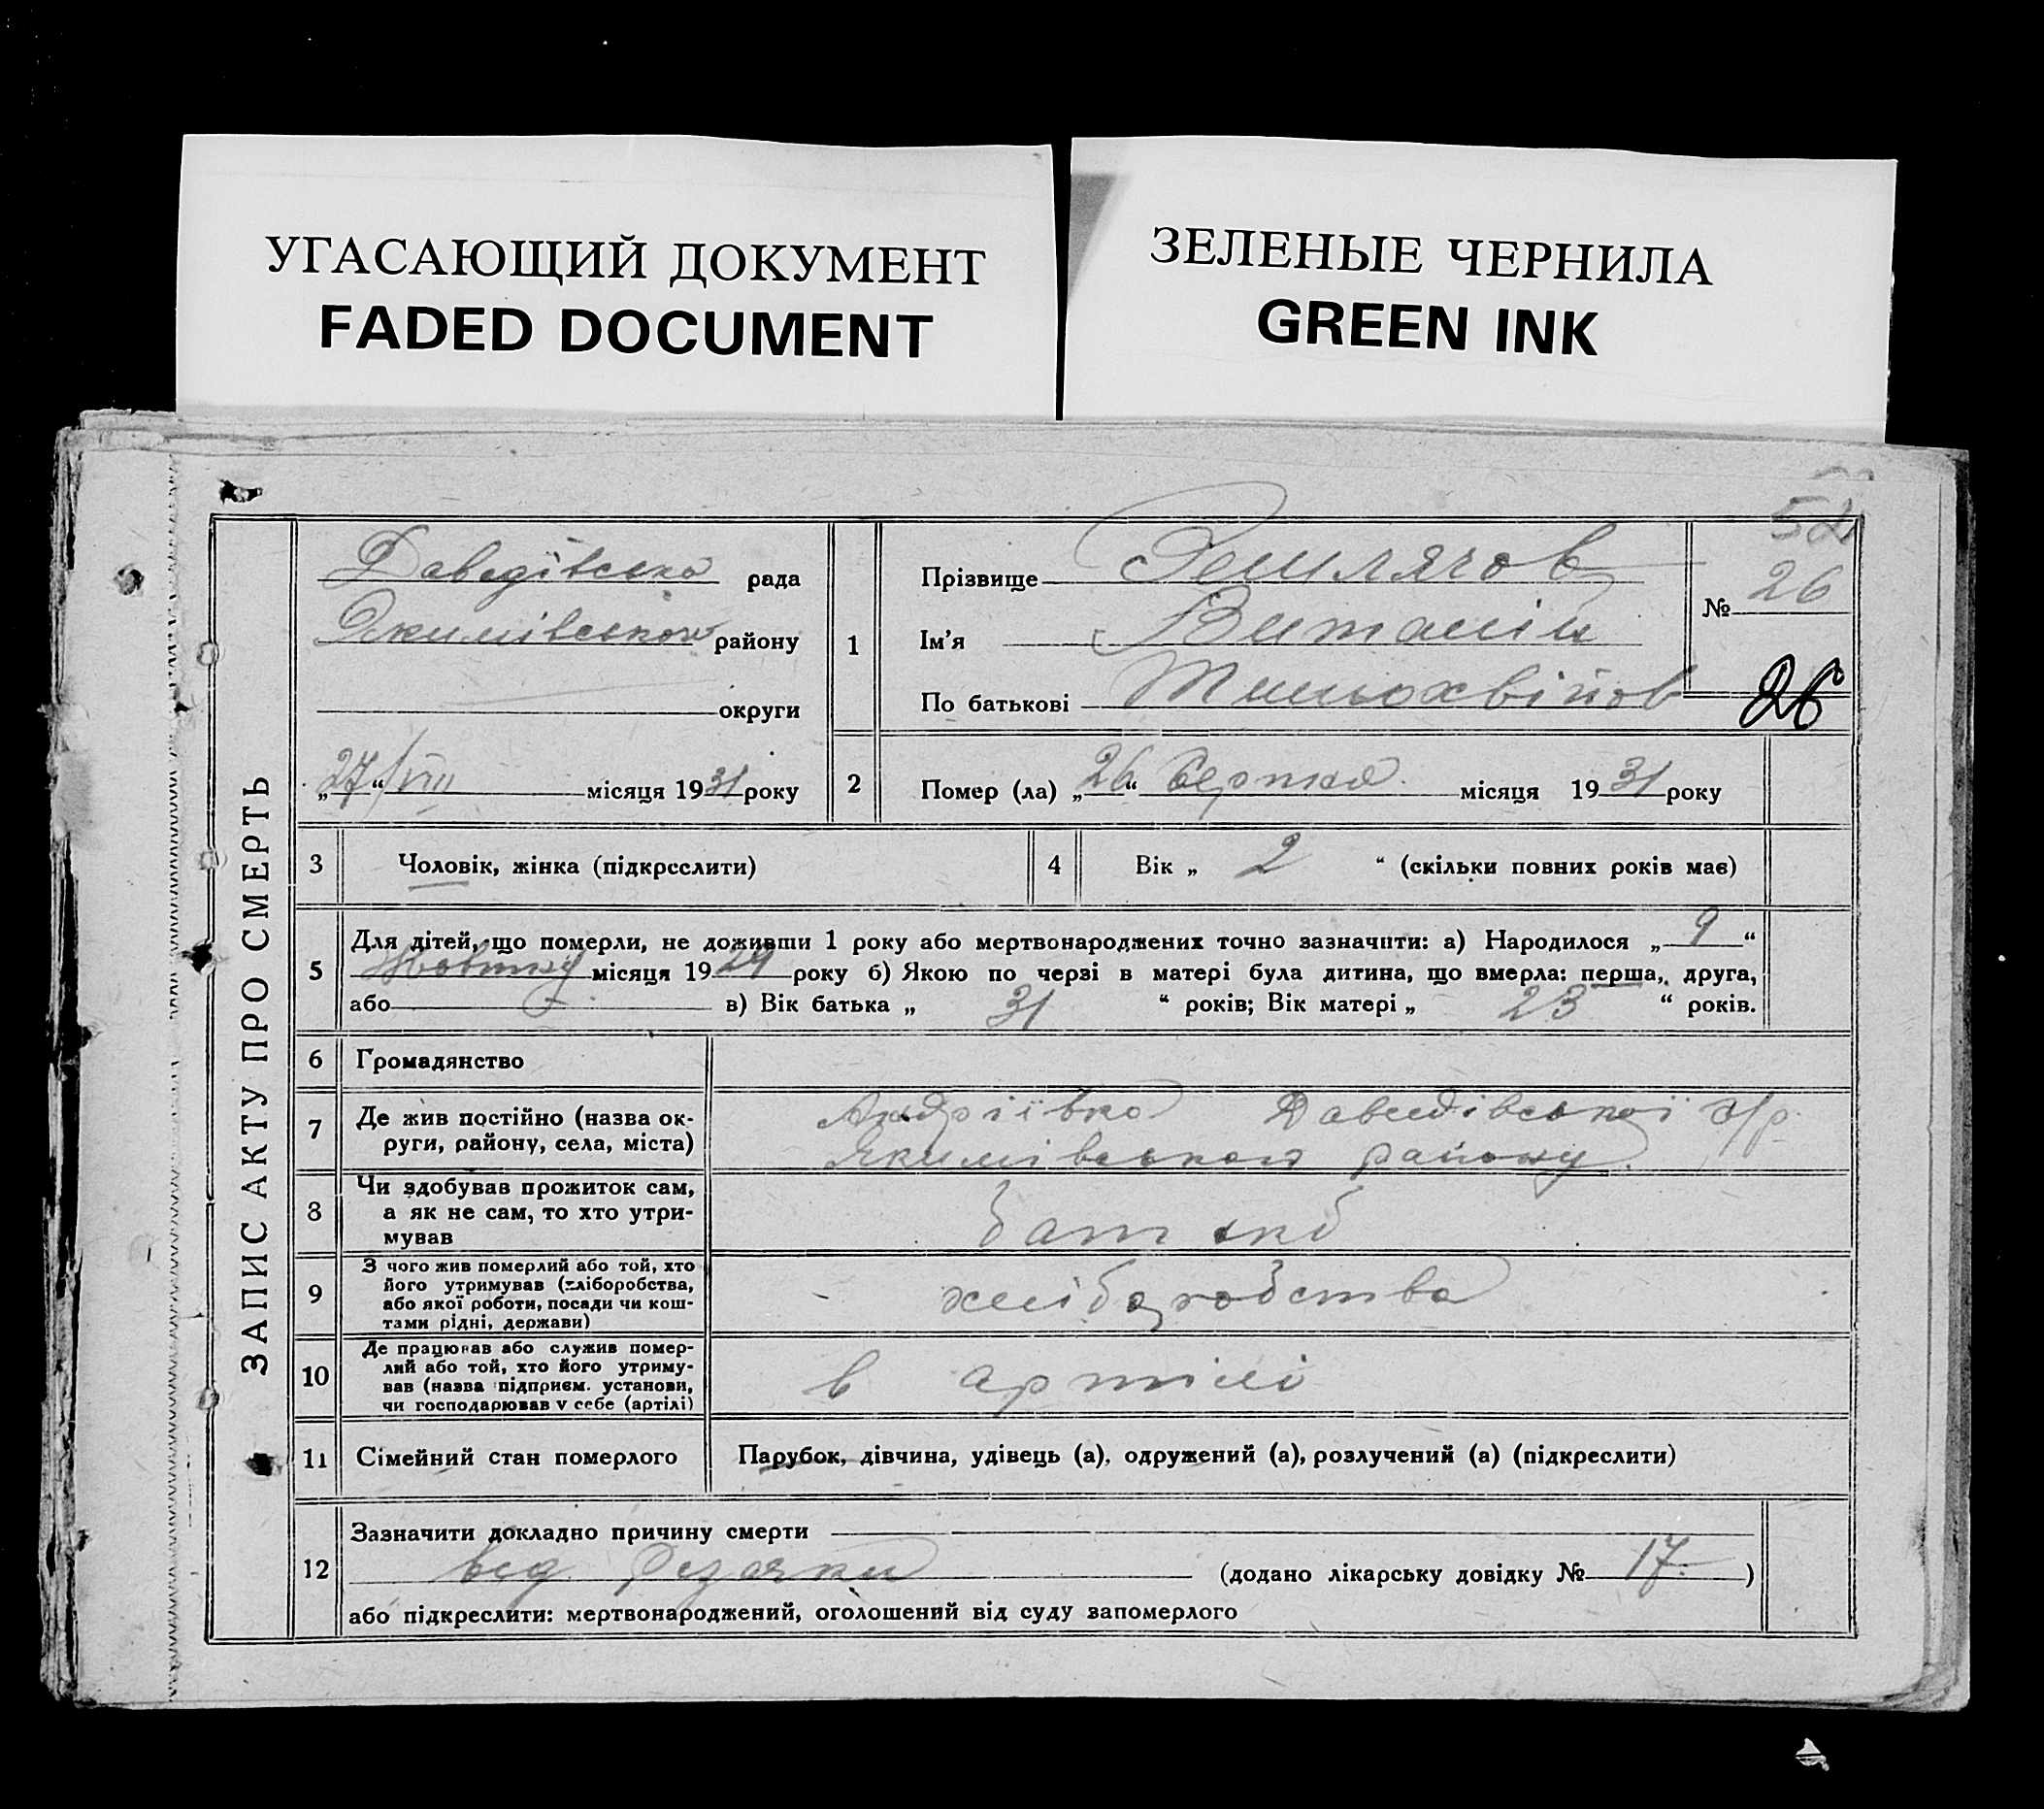 УГАСАЮЩИЙ ДОКУМЕНТ
FADED DOCUMENT
ЗЕЛЕНЫЕ ЧЕРНИЛА
GREEN INK
52
ЗАПИС АКТУ ПРО СМЕРТЬ
Даведівська рада
Якимівського району
округи
„27“/VIII місяця 1931 року
1
Прізвище
Ім’я Виталій
По батькові
№ 26
26
2
Помер (ла) „26“ Серпня місяця 1931 року
3 Чоловік, жінка (підкреслити)
4 Вік „ 2 “ (скільки повних років має)
5
Для дітей, що померли, не доживши 1 року або мертвонароджених точно зазначити: а) Народилося „ 9 “
місяця 1929 року б) Якою по черзі в матері була дитина, що вмерла: перша, друга,
або в) Вік батька „ 31 “ років; Вік матері „ 23 “ років.
6 Громадянство
7
Де жив постійно (назва ок-
руги, району, села, міста)
Андріївка Даведівської с/р.
Якимівського району.
8
Чи здобував прожиток сам,
а як не сам, то хто утри-
мував
батько
9
З чого жив померлий або той, хто
його утримував (хліборобства,
або якої роботи, посади чи кош-
тами рідні, держави)
хліборобства
10
Де працював або служив помер-
лий або той, хто його утриму-
вав (назва підприєм. установи,
чи господарював у себе (артілі)
в артілі
11 Сімейний стан померлого
Парубок, дівчина, удівець (а), одружений (а), розлучений (а) (підкреслити)
12
Зазначити докладно причину смерти
від Різачки (додано лікарську довідку № 17.)
або підкреслити: мертвонароджений, оголошений від суду запомерлого